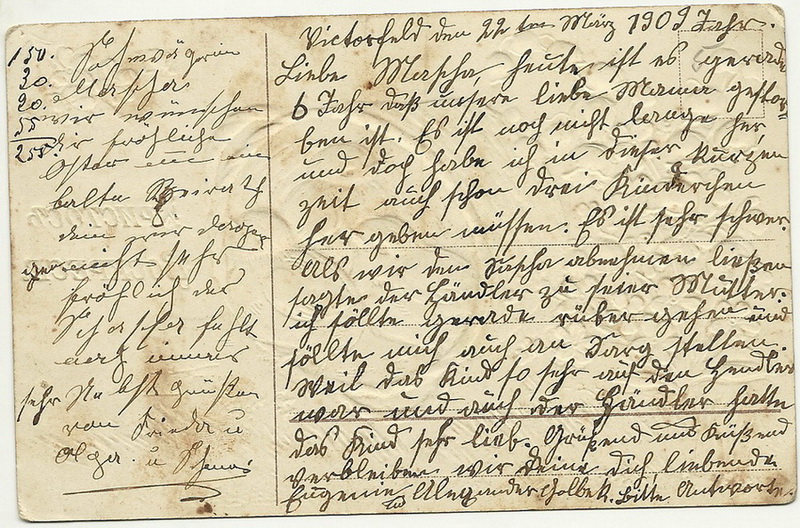 150.
20.
20.
55
255
Schwägerin
Mascha
wir wünschen
dir fröhliche
Ostern und ein
balta Heirath
dein zwar dages
gen nicht sehr
fröhlich das
Sascha fehlt
noch immer
sehr Na bst grüßen
von Frieda u
Olga. u
Victorfeld den 22 ten März 1909 Jahr.
Liebe Mascha, heute ist es gerade
6 Jahr daß unsere liebe Mama gestor-
ben ist. Es ist noch nicht lange her,
und doch habe ich in dieser kurzen
zeit auch schon drei Kinderchen
her geben müssen. Es ist sehr schwer.
Als wir den Sascha abnehmen ließen
sagte der Händler zu seier Mutter:
ich söllte gerade rüber gehen und
söllte mich auch an Sarg stellen.
Weil das Kind so sehr auf den Hendler
war und auch der Händler hatte
das Kind sehr lieb. Grüßend und Küßend
verbleiben wir deine dich liebende
Eugenie und Alexander Golbek. Bitte Antworte.